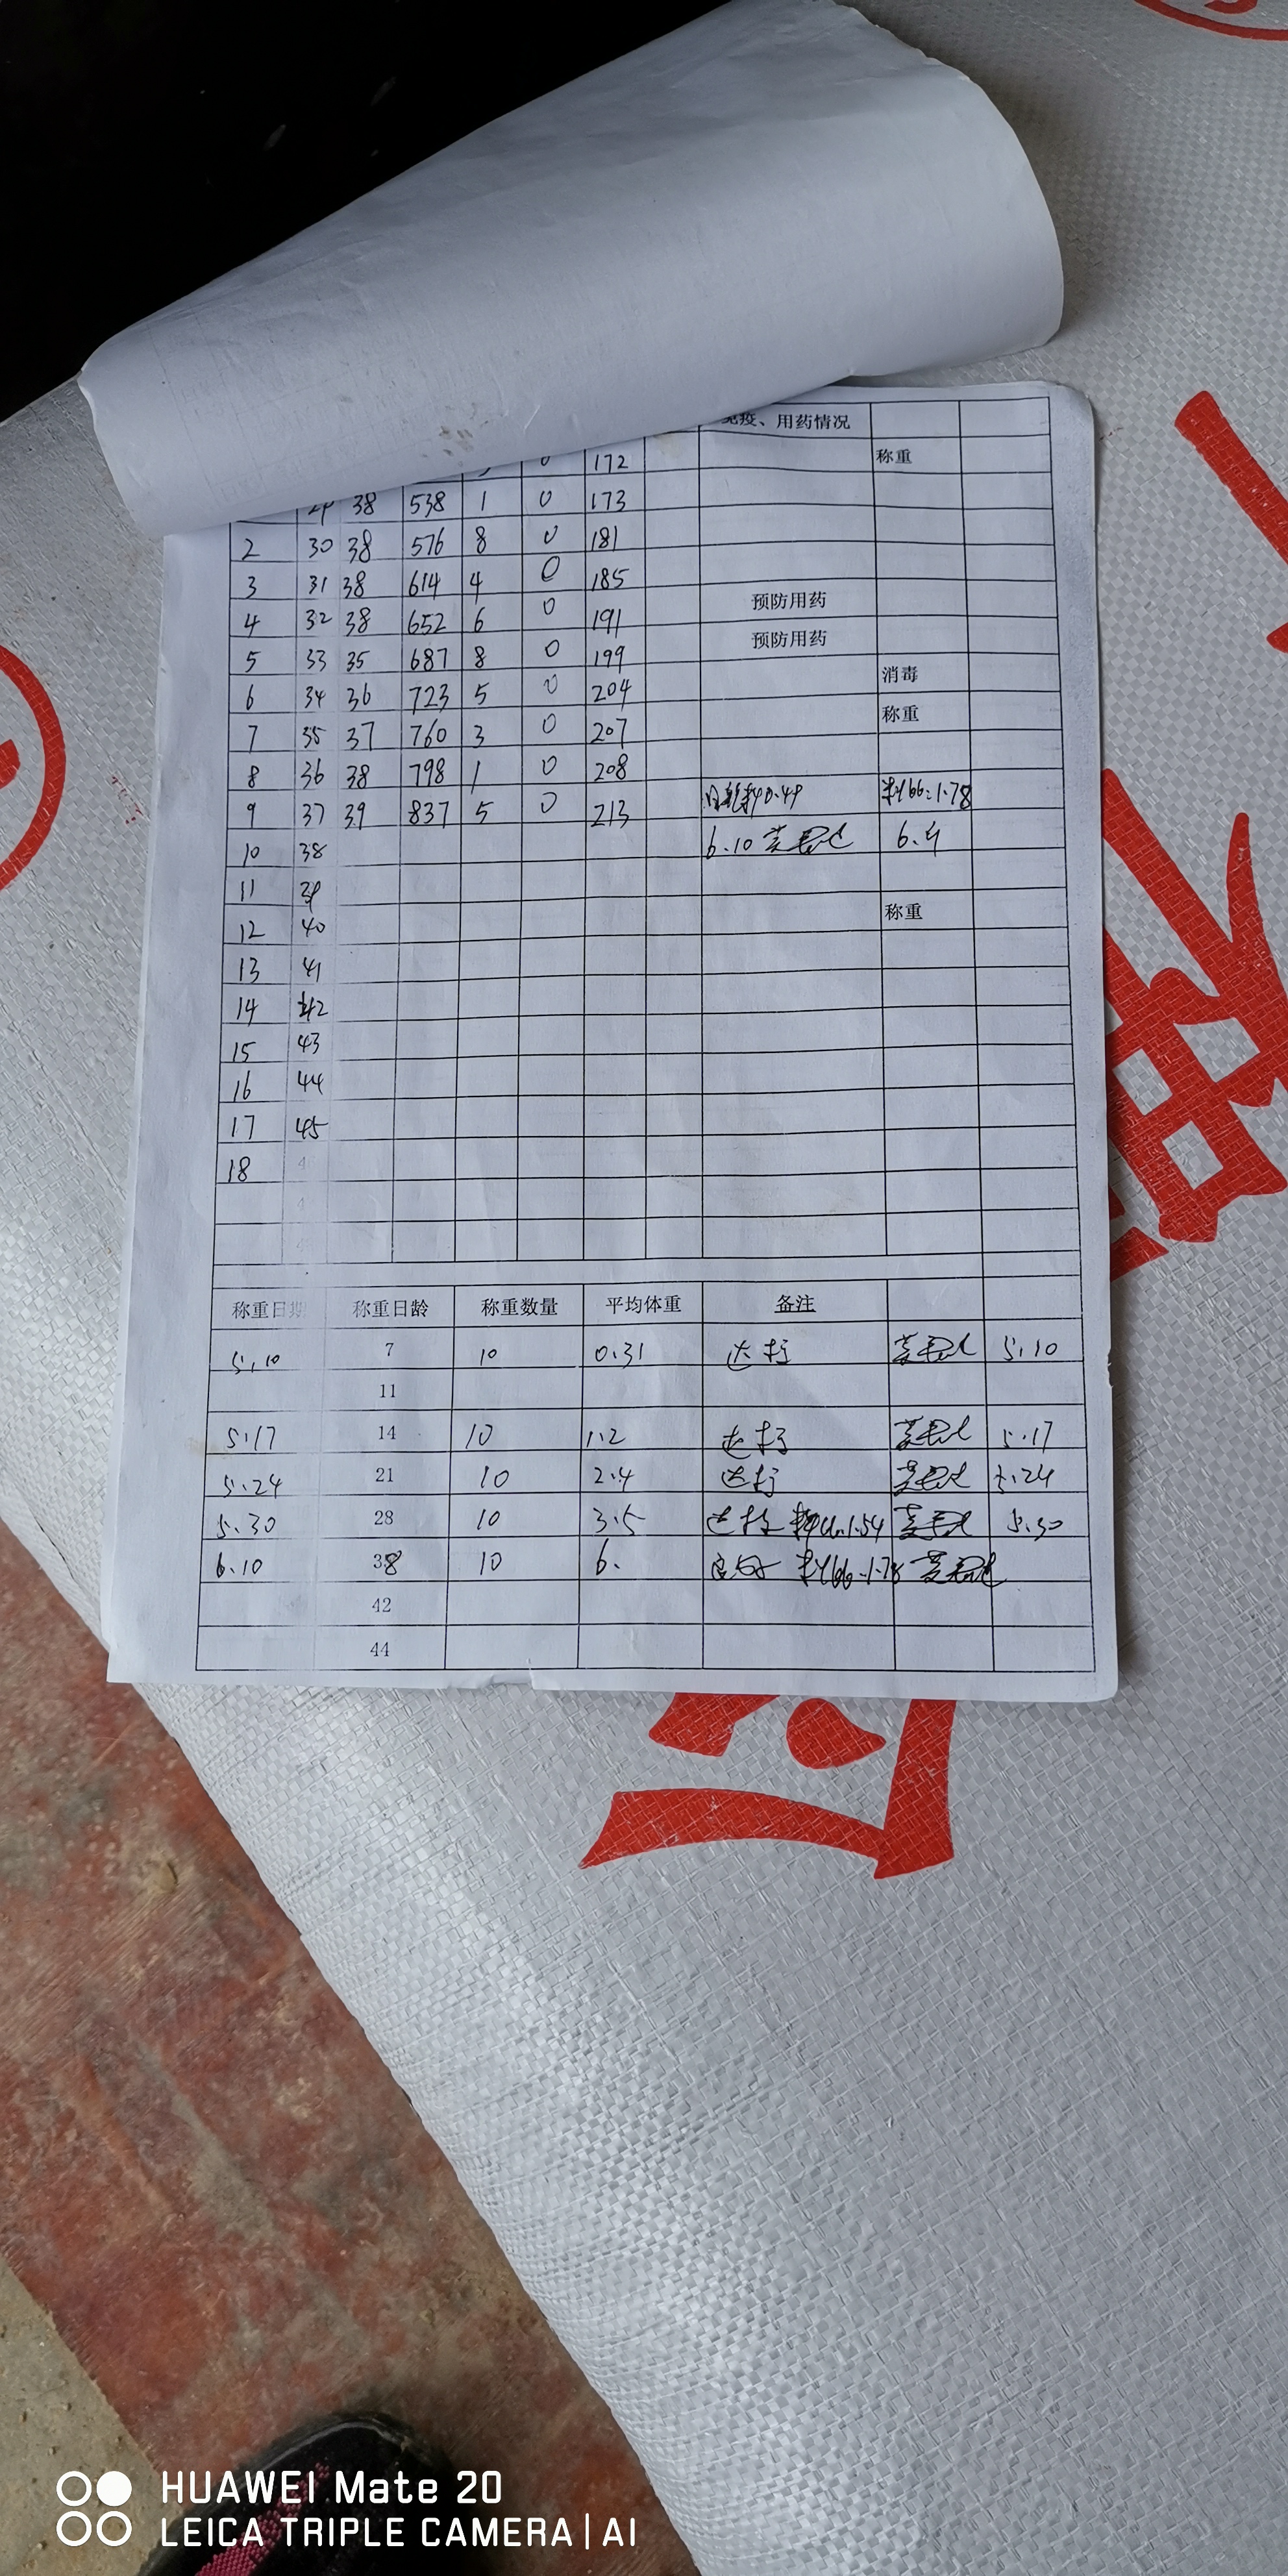 免疫、用药情况
0 172 称重
29 38 538 1 0 173
2 30 38 576 8 0 181
3 31 38 614 4 0 185
4 32 38 652 6 0 191 预防用药
5 33 35 687 8 0 199 预防用药
6 34 36 723 5 0 204 消毒
7 35 37 760 3 0 207 称重
8 36 38 798 1 0 208
9 37 39 837 5 0 213 日耗料0.49 料166=1.78
10 38 6.10 6.斤
11 39
12 40 称重
13 41
14 42
15 43
16 44
17 45
18
称重日期 称重日龄 称重数量 平均体重 备注
5.10 7 10 0.31 达标 5.10
11
5.17 14 10 1.2 达标 5.17
5.24 21 10 2.4 达标 5.24
5.30 28 10 3.5 达标 1.54 5.30
6.10 38 10 6. 良好 料166=1.78
42
44
HUAWEI Mate 20
LEICA TRIPLE CAMERA | AI